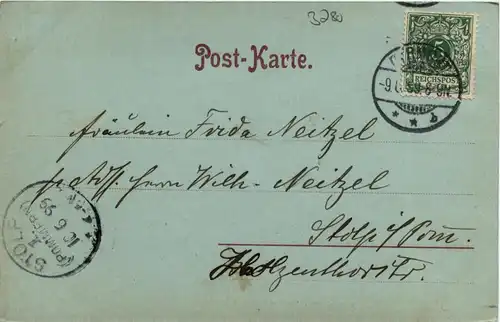 3280
Post-Karte.
REICHSPOST
-9.6.99 8-9N.
* * b
Fräulein Frida Neitzel
p. Adr. Herrn Wilh. Neitzel
Stolp i/Pom.
Holzenthorstr.
STOLP
1
(POMMERN)
10 6 99